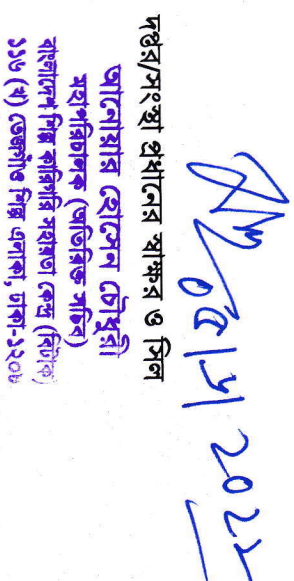 দপ্তর/সংস্থা প্রধানের স্বাক্ষর ও সিল
আনোয়ার হোসেন চৌধুরী
মহাপরিচালক (অতিরিক্ত সচিব)
বাংলাদেশ শিল্প কারিগরি সহায়তা কেন্দ্র (বিটাক)
১১৬ (খ) তেজগাঁও শিল্প এলাকা, ঢাকা-১২০৮